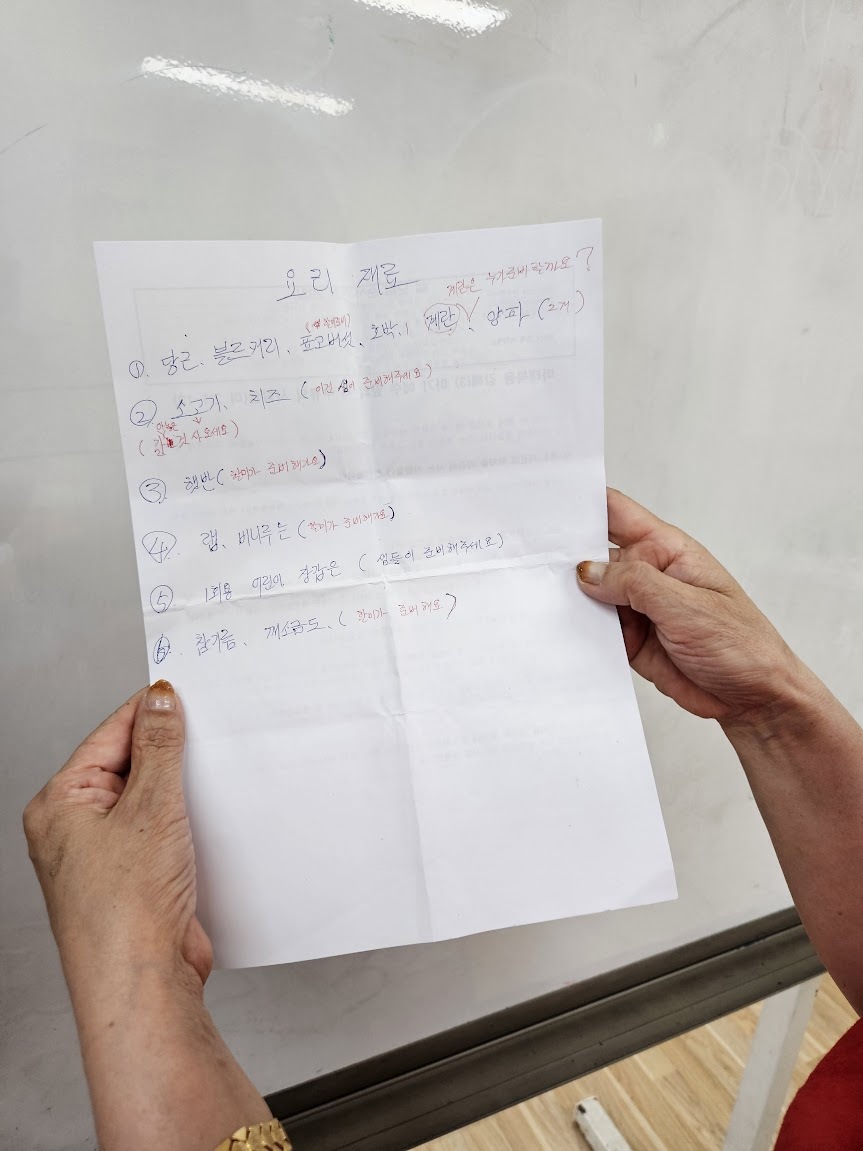 요리 재료
계란은 누가 준비할까요?
① 당근, 블로커리, 표고버섯, 호박, 계란, 양파 (2개)
② 소고기, 치즈 (이런 준비해주세요)
사오세요)
③ 햇반 (할미가 준비해가요)
④ 랩, 비니루는 (할미가 준비해가요)
⑤ 1회용 어린이 장갑은 (샘들이 준비해주세요)
⑥ 참기름, 깨소금도, (할미가 준비해요)